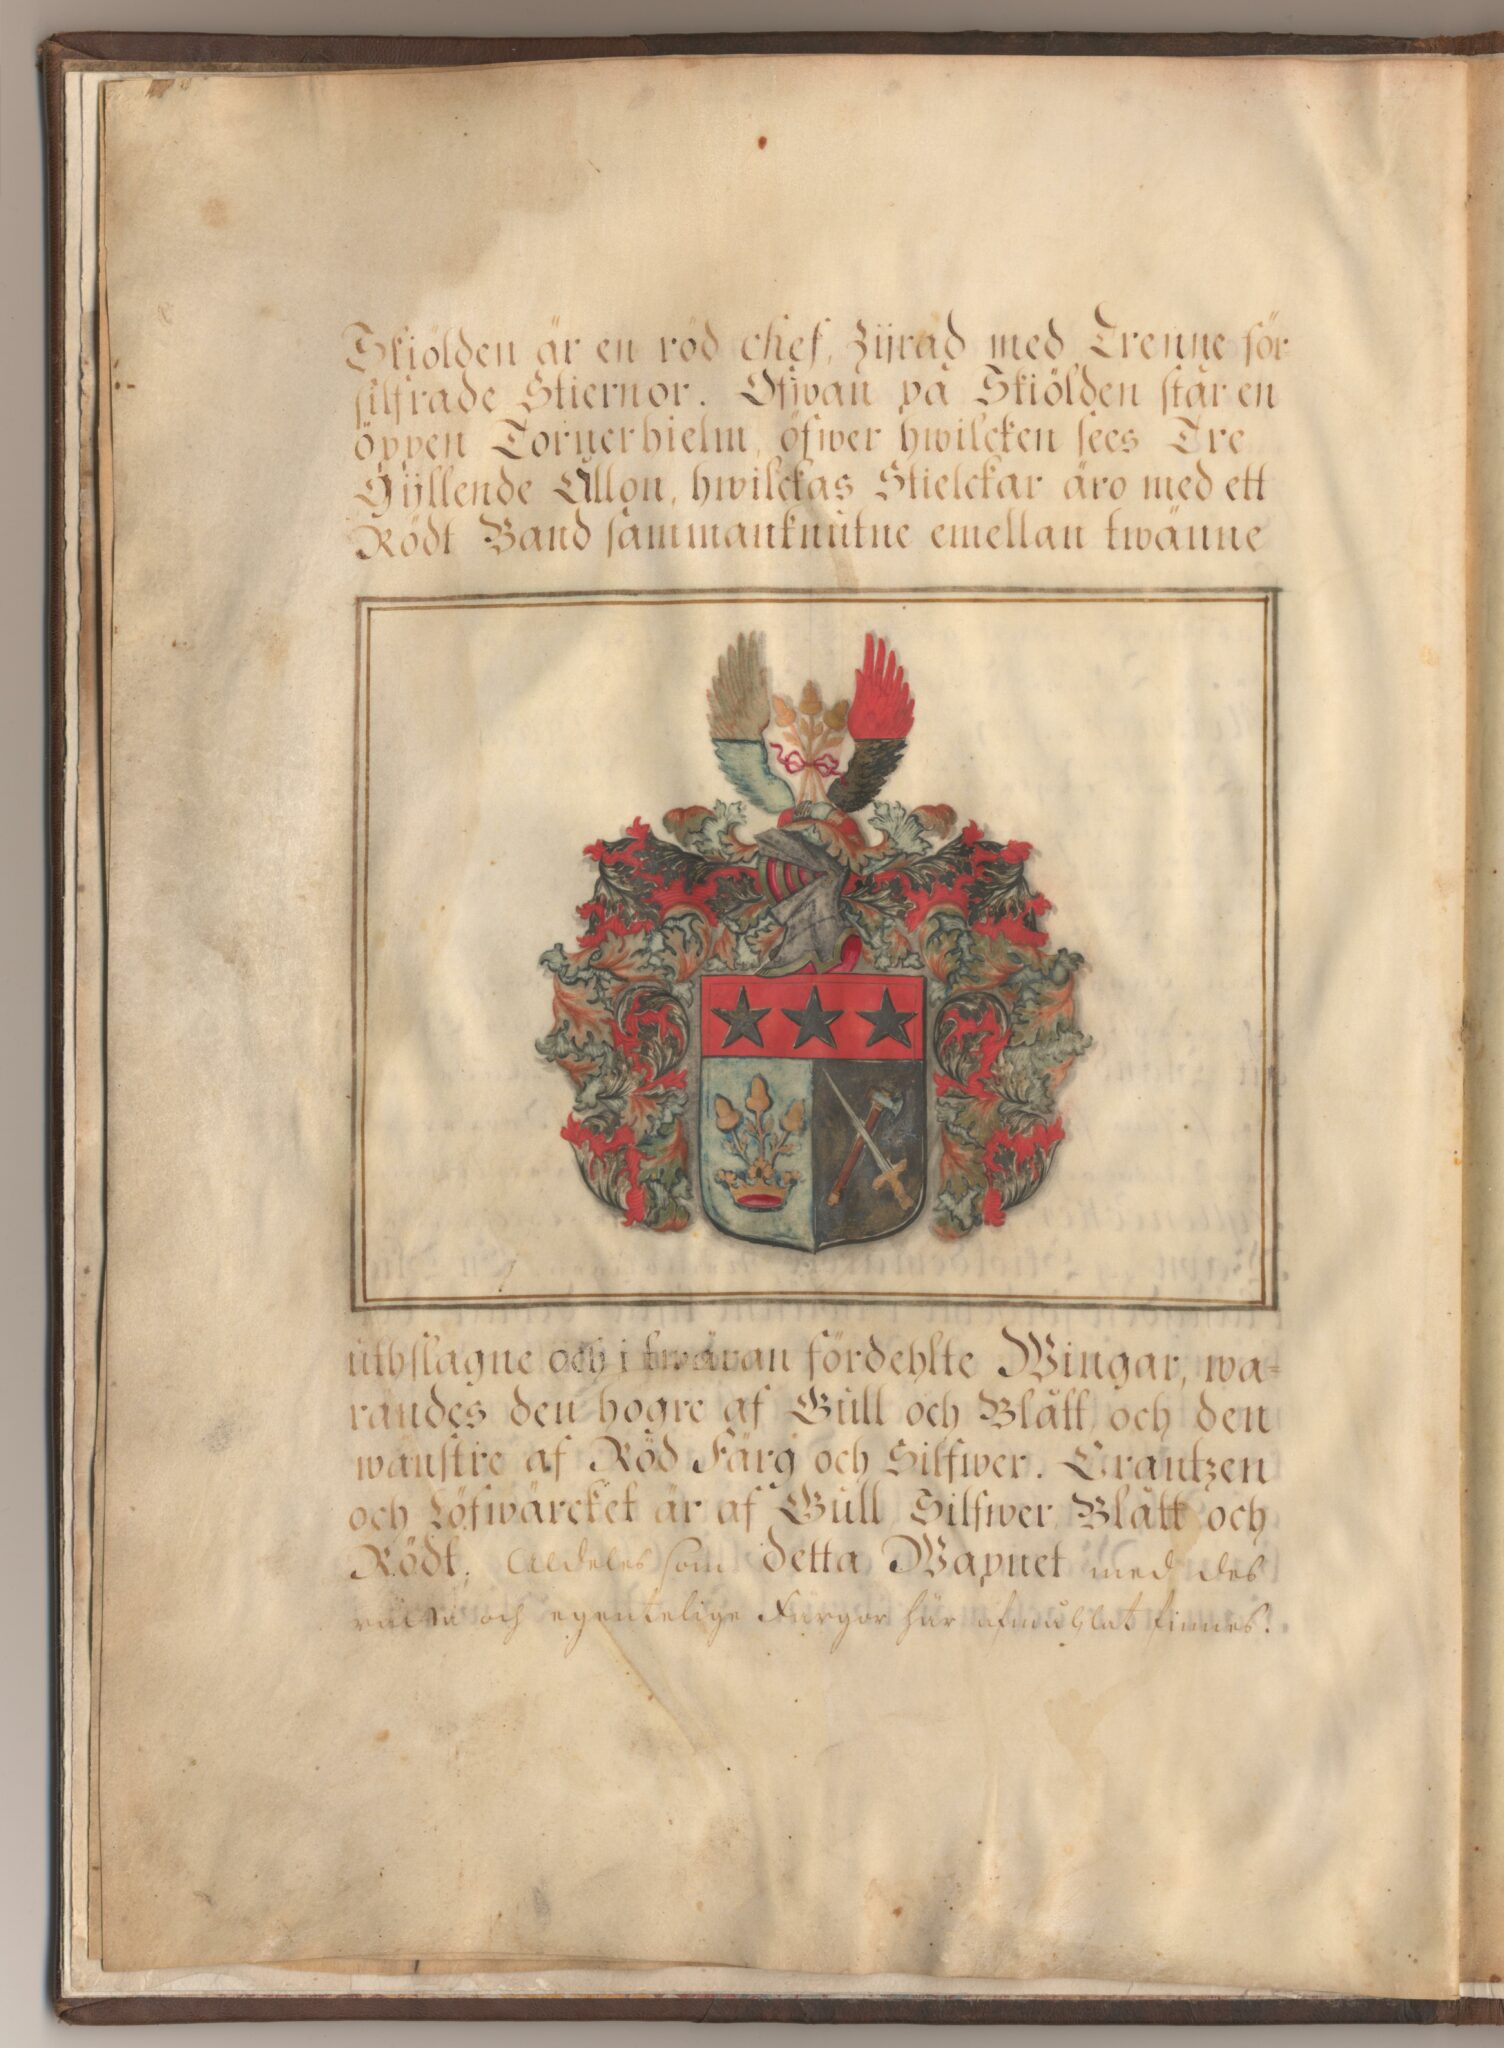 Skiölden är en röd chef, Zijrad med Trenne för
silfrade Stiernor. Ofwan på Skiölden står en
öppen Tornerhielm, öfwer hwilcken sees Tre
Gyllende Ållon, hwilckas Stielckar äro med ett
Rödt Band sammanknutne emellan twänne
uthslagne och i twäran fördehlte Wingar, wa=
randes den hogre af Gull och Blått, och den
wänstre af Röd Färg och Silfwer. Crantzen
och Löfwärcket är af Gull Silfwer Blått och
Rödt. Aldeles som detta Wapnet med des
rätta och egentelige Färgor här afmåhlat finnes.